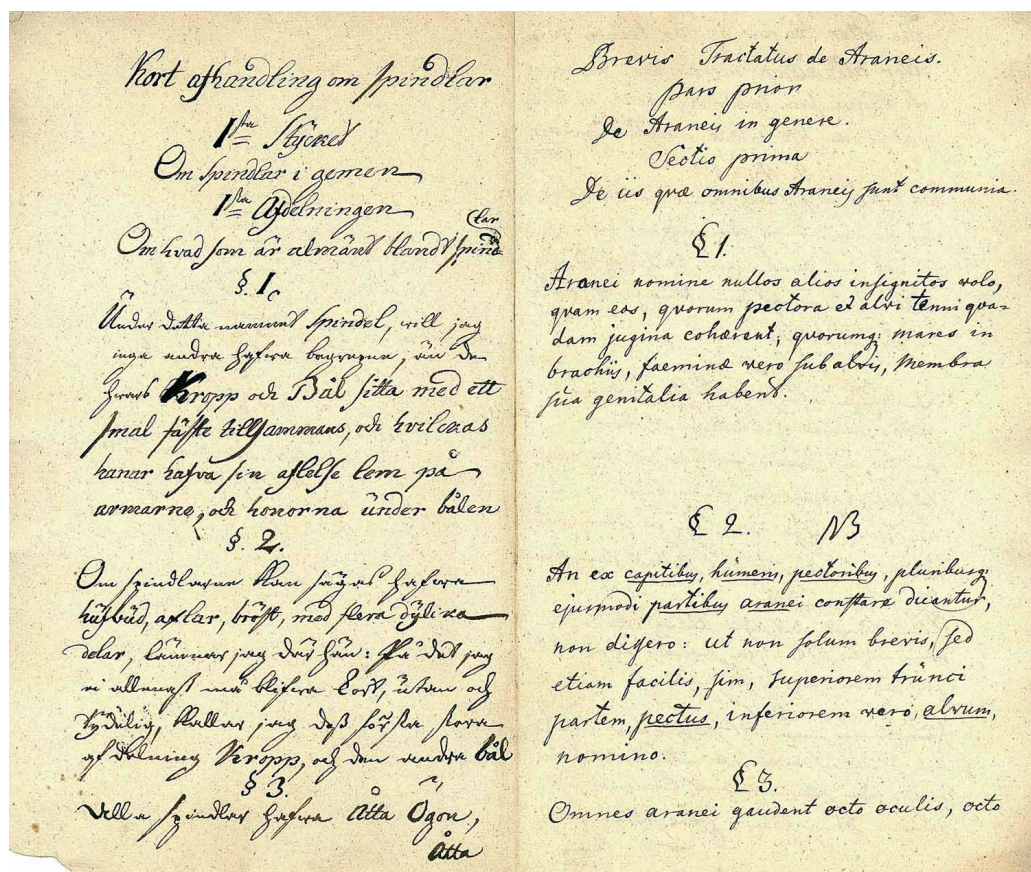 Kort afhandling om spindlar
1sta Stycket
Om spindlar i gemen
1sta Afdelningen
Om hvad som är almänt blandt spind
lar
§. 1.
Under detta namnet Spindel, will jag
inga andra hafwa begrepne, än de
hwars Kropp och Bål sitta med ett
smal fäste tillsammans, och hvilckas
hanar hafva sin aflelse lem på
armarne, och honorna under bålen
§. 2.
Om spindlarne kan sägas hafwa
hufvud, axlar, bröst, med flera dylika
delar, lämnar jag där hän: På det jag
ei allenast må blifwa kort, utan och
tydelig, kallar jag deß första stora
afdelning Kropp, och den andra bål
§ 3.
Alla spindlar hafwa Åtta Ögon,
Åtta
Brevis Tractatus de Araneis.
pars prior
De Araneis in genere.
Sectio prima
De iis quæ omnibus Araneis sunt communia.
§ 1.
Aranei nomine nullos alios insignitos volo,
qvam eos, qvorum pectora et alvi tenui qva=
dam jugina cohærent; qvorumq: mares in
brachiis, faeminæ vero sub alvis, Membra
sua genitalia habent.
§ 2. NB
An ex capitibus, humeris, pectoribus, pluribusq:
ejusmodi partibus aranei constare dicantur,
non dissero: ut non solum brevis, sed
etiam facilis, sim, Superiorem trunci
partem, pectus, inferiorem vero, alvum,
nomino.
§ 3.
Omnes aranei gaudent octo oculis, octo